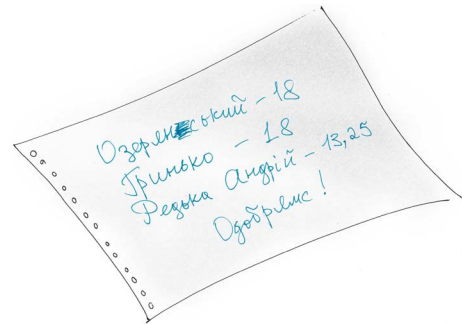 Озерянський - 18
Гринько - 18
Редька Андрій - 13,25
Одобрямс!